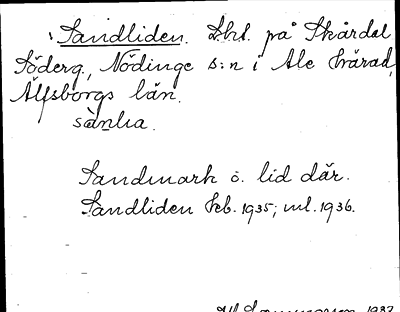 Sandliden. Lht. på Skårdal
Söderg., Nödinge s:n i Ale härad,
Älfsborgs län.
sànlia.
Sandmark o. lid där.
Sandliden Kb. 1935; ml. 1936.
1937